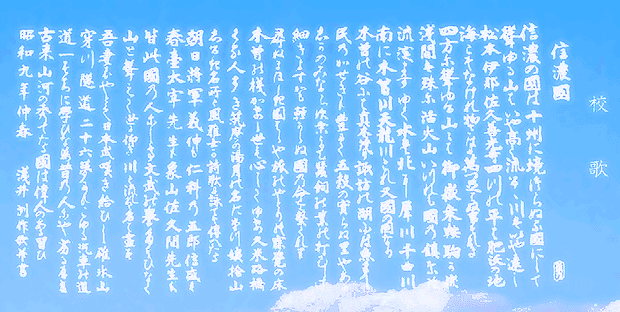 校歌
信濃国
信濃の国は十州に境つらぬる国にして
聳ゆる山はいや高く流るゝ川はいや遠し
松本伊那佐久善光寺四つの平は肥沃の地
海こそなけれ物さはに万づ足らはぬ事ぞなき
四方に聳ゆる山々は御嶽乗鞍駒ヶ嶽
浅間は殊に活火山いづれも国の鎮めなり
流れ淀まずゆく水は北に犀川千曲川
南に木曽川天龍川これ又国の固なり
木曽の谷には真木茂り諏訪の湖には魚多し
民のかせぎも豊にて五穀の実らぬ里やある
しかのみならず桑とりて蚕飼の業の打ひらけ
細きよすがも軽からぬ国の命を繋ぐなり
尋ねまほしき園原や旅のやどりの寝覚の床
木曽の桟かけし世も心してゆけ久米路橋
くる人多き筑摩の湯月の名にたつ姨捨山
しるき名所と風雅士が詩歌に詠てぞ傳へたる
朝日将軍義仲も仁科の五郎信盛も
春臺太宰先生も象山佐久間先生も
皆此国の人にして文武の誉たぐひなく
山と聳えて世に仰ぎ川と流れて名は盡ず
吾妻はやとし日本武嘆き給ひし碓氷山
穿つ隧道二十六夢にもこゆる汽車の道
道一すぢに学びなば昔の人にや劣るべき
古来山河の秀でたる国は偉人のある習ひ
昭和九年仲春 浅井洌作歌并書